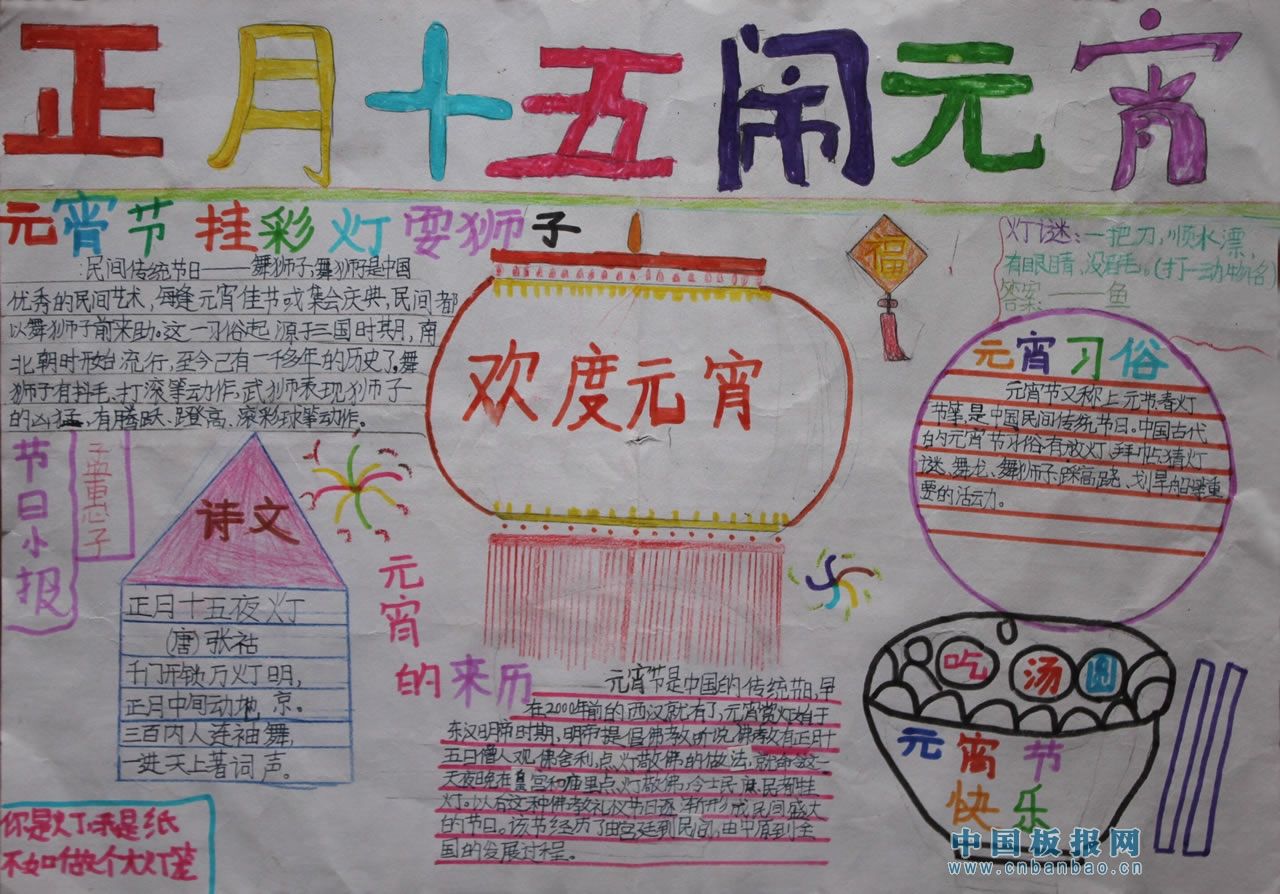 正月十五闹元宵
元宵节挂彩灯耍狮子
:民间传统节日——舞狮子,舞狮子是中国
优秀的民间艺术,每逢元宵佳节或集会庆典,民间都
以舞狮子前来助。这一习俗起源于三国时期,南
北朝时开始流行,至今已有一千多年的历史了。舞
狮子有抖毛、打滚等动作,武狮表现狮子
的凶猛,有腾跃、蹬高、滚彩球等动作。
节日小报
诗文
正月十五夜灯
(唐)张祜
千门开锁万灯明,
正月中旬动地京。
三百内人连袖舞,
一进天上著词声。
你是灯我是纸
不如做个大灯笼
欢度元宵
元宵的来历
——元宵节是中国的传统节日,早
在2000年前的西汉就有了,元宵赏灯始于
东汉明帝时期,明帝提倡佛教,听说佛教有正月十
五日僧人观佛舍利,点灯敬佛的做法,就命令这一
天夜晚在皇宫和庙里点灯敬佛,令士民庶民都挂
灯。以后这种佛教礼仪节日逐渐形成民间盛大
的节日。该节经历了由宫廷到民间,由中原到全
国的发展过程。
福
灯谜:一把刀,顺水漂,
有眼睛,没眉毛。(打一动物名)
答案:——鱼
元宵习俗
元宵节又称上元节春灯
节等,是中国民间传统节日。中国古代
的元宵节习俗有放灯、拜
猜灯
谜、舞龙、舞狮子、踩高跷、划旱船等重
要的活动。
吃汤圆
元宵节
快乐
中国板报网
www.cnbanbao.cn